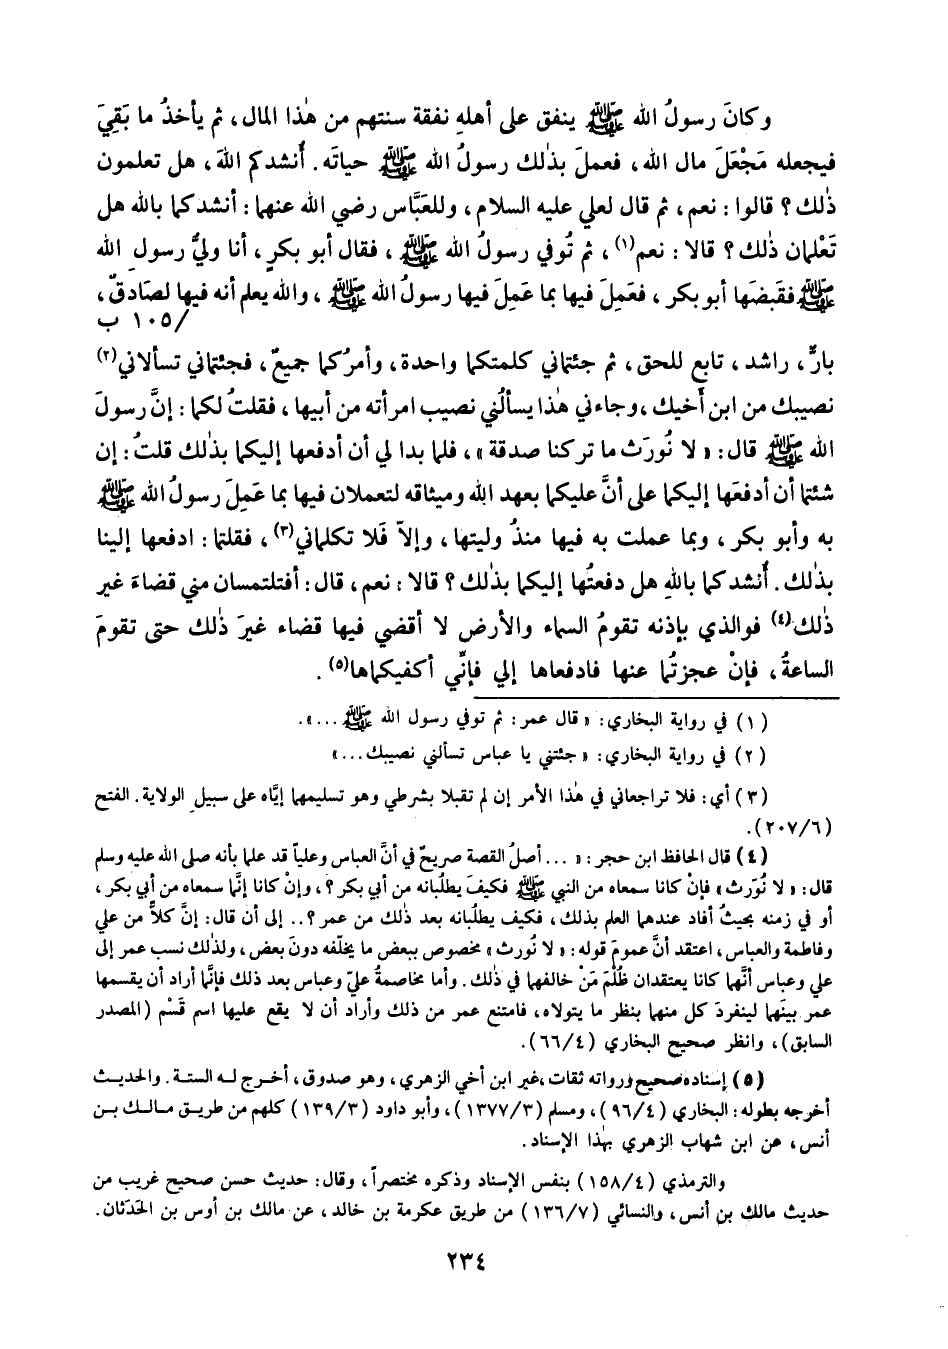 وكانَ رسولُ الله ﷺ ينفق على أهلهِ نفقة سنتهم من هٰذا المال، ثم يأخذُ ما بَقِيَ
فيجعله مَجْعَلَ مال الله، فعملَ بذٰلك رسولُ الله ﷺ حياتَه. أَنشدكم اللهَ، هل تعلمون
ذٰلك؟ قالوا: نعم، ثم قال لعلي عليه السلام، وللعَبَّاس رضي الله عنهما: أنشدكما بالله هل
تَعْلمان ذٰلك؟ قالا: نعم(١)، ثم تُوفي رسولُ الله ﷺ، فقال أبو بكرٍ، أنا وليُّ رسولِ الله
ﷺ فقَبضَها أبو بكر، فعَمِلَ فيها بما عَمِلَ فيها رسولُ الله ﷺ، والله يعلم أنه فيها لصَادقٌ،
/١٠٥ ب
بارٌّ، راشد، تابع للحق، ثم جئتماني كلمتكما واحدة، وأمرُكما جميعٌ، فجئتماني تسألاني(٢)
نصيبك من ابن أَخيك، وجاءني هٰذا يسألُني نصيب امرأته من أبيها، فقلتُ لكما: إنَّ رسولَ
الله ﷺ قال: «لا نُورَث ما تركنا صدقة»، فلما بدا لي أن أدفعها إليكما بذٰلك قلتُ: إن
شئتما أن أدفعَها إليكما على أنَّ عليكما بعهد الله وميثاقه لتعملان فيها بما عَمِلَ رسولُ الله ﷺ
به وأبو بكر، وبما عملت به فيها منذُ وليتها، وإلاّ فَلا تكلماني(٣)، فقلتما: ادفعها إلينا
بذٰلك. أَنشدكما باللهِ هل دفعتُها إليكما بذٰلك؟ قالا: نعم، قال: أفتلتمسان مني قضاءَ غير
ذٰلك(٤) فوالذي بإذنه تقومُ السماء والأرض لا أقضي فيها قضاء غيرَ ذٰلك حتى تقومَ
الساعةُ، فإنْ عجزتُما عنها فادفعاها إلي فإنِّي أكفيكماها(٥).
(١) في رواية البخاري: «قال عمر: ثم توفي رسول الله ﷺ...».
(٢) في رواية البخاري: «جئتني يا عباس تسألني نصيبك...»
(٣) أي: فلا تراجعاني في هٰذا الأمر إن لم تقبلا بشرطي وهو تسليمهما إيَّاه على سبيلِ الولاية. الفتح
(٢٠٧/٦).
(٤) قال الحافظ ابن حجر: «... أصلُ القصة صريحٌ في أنَّ العباس وعلياً قد علما بأنه صلى الله عليه وسلم
قال: «لا نُورَث» فإنْ كانا سمعاه من النبي ﷺ فكيفَ يطلُبانه من أبي بكر؟، وإنْ كانا إنَّما سمعاه من أبي بكر،
أو في زمنه بحيثُ أفاد عندهما العلم بذلك، فكيف يطلُبانه بعد ذٰلك من عمر؟.. إلى أن قال: إنَّ كلاًّ من علي
وفاطمة والعباس، اعتقد أنَّ عمومَ قوله: «لا نُورث» مخصوص ببعض ما يخلِّفه دونَ بعض، ولذٰلك نسب عمر إلى
علي وعباس أنَّهما كانا يعتقدان ظُلْمَ مَنْ خالفهما في ذٰلك. وأما مخاصمةُ عليّ وعباس بعد ذلك فإنَّما أراد أن يقسمها
عمر بينَهما لينفردَ كل منهما بنظر ما يتولاه، فامتنع عمر من ذلك وأراد أن لا يقع عليها اسم قَسْم (المصدر
السابق)، وانظر صحيح البخاري (٦٦/٤).
(٥) إسناده صحيح ورواته ثقات، غير ابن أخي الزهري، وهو صدوق، أخرج له الستة. والحديث
أخرجه بطوله: البخاري (٩٦/٤)، ومسلم (١٣٧٧/٣)، وأبو داود (١٣٩/٣) كلهم من طريق مالك بن
أنس، عن ابن شهاب الزهري بهٰذا الإسناد.
والترمذي (١٥٨/٤) بنفس الإسناد وذكره مختصراً، وقال: حديث حسن صحيح غريب من
حديث مالك بن أنس، والنسائي (١٣٦/٧) من طريق عكرمة بن خالد، عن مالك بن أوس بن الحَدَثان.
٢٣٤